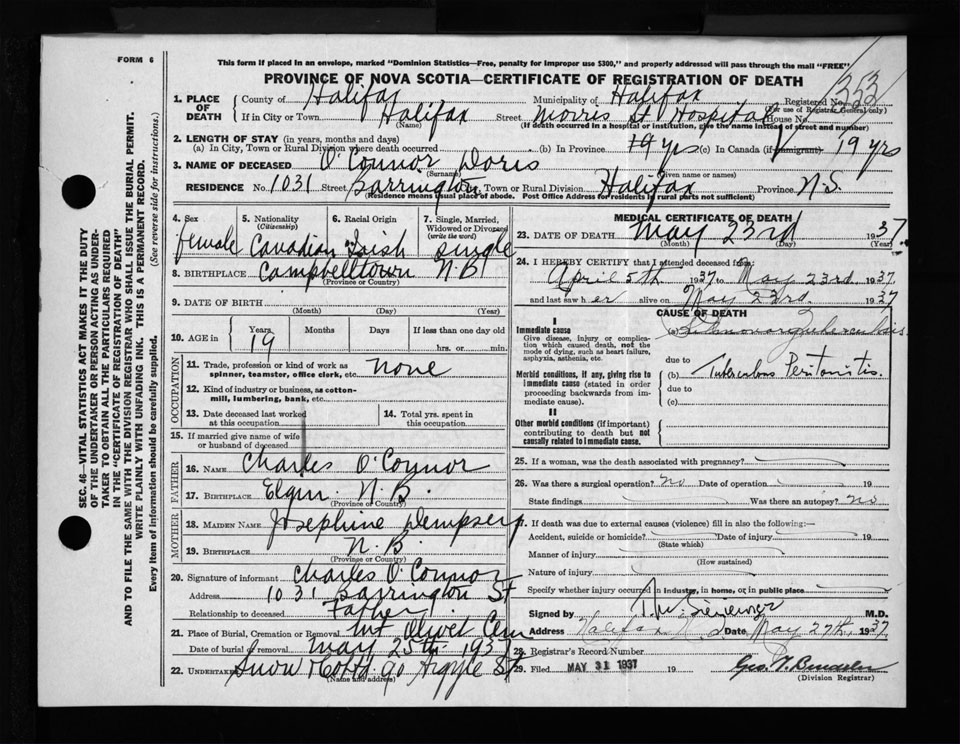 FORM 6
This form if placed in an envelope, marked "Dominion Statistics—Free, penalty for improper use $300," and properly addressed will pass through the mail "FREE"
PROVINCE OF NOVA SCOTIA—CERTIFICATE OF REGISTRATION OF DEATH
1. PLACE OF DEATH County of Halifax Municipality of Halifax Registered No. 353
(For use of Registrar General only)
If in City or Town Halifax Street Morris St Hospital House No.
(Name) (If death occurred in a hospital or institution, give the name instead of street and number)
2. LENGTH OF STAY (in years, months and days)
(a) In City, Town or Rural Division where death occurred (b) In Province 19 yrs (c) In Canada (if immigrant) 19 yrs
3. NAME OF DECEASED O'Connor Doris
(Surname) (Given name or names)
RESIDENCE No. 1031 Street Barrington City, Town or Rural Division Halifax Province N.S.
(Residence means usual place of abode. Post Office Address for residents in rural parts not sufficient)
4. Sex female
5. Nationality (Citizenship) Canadian
6. Racial Origin Irish
7. Single, Married, Widowed or Divorced (write the word) single
8. BIRTHPLACE Campbelltown N.B
(Province or Country)
9. DATE OF BIRTH
(Month) (Day) (Year)
10. AGE in Years 19 Months Days If less than one day old
hrs. or min.
OCCUPATION
11. Trade, profession or kind of work as spinner, teamster, office clerk, etc. none
12. Kind of industry or business, as cotton-mill, lumbering, bank, etc.
13. Date deceased last worked at this occupation
14. Total yrs. spent in this occupation
15. If married give name of wife or husband of deceased
FATHER
16. NAME Charles O'Connor
17. BIRTHPLACE Elgin N.B.
(Province or Country)
MOTHER
18. MAIDEN NAME Josephine Dempsey
19. BIRTHPLACE N.B.
(Province or Country)
20. Signature of informant Charles O'Connor
Address 1031 Barrington St
Relationship to deceased Father
21. Place of Burial, Cremation or Removal Mt Olivet Cem
Date of burial or removal May 25th 1937
22. UNDERTAKER Snow & Co Ltd 90 Argyle St
(Name and address)
MEDICAL CERTIFICATE OF DEATH
23. DATE OF DEATH May 23rd 1937
(Month) (Day) (Year)
24. I HEREBY CERTIFY that I attended deceased from:
April 5th 1937 to May 23rd 1937
and last saw her alive on May 23rd 1937
CAUSE OF DEATH
I
Immediate cause
Give disease, injury or complication which caused death, not the mode of dying, such as heart failure, asphyxia, asthenia, etc.
(a) Pulmonary tuberculosis
due to
Morbid conditions, if any, giving rise to immediate cause (stated in order proceeding backwards from immediate cause).
(b) Tuberculous Peritonitis.
due to
(c)
II
Other morbid conditions (if important) contributing to death but not causally related to immediate cause.
25. If a woman, was the death associated with pregnancy?
26. Was there a surgical operation? no Date of operation 19
State findings Was there an autopsy? no
27. If death was due to external causes (violence) fill in also the following:—
Accident, suicide or homicide? Date of injury 19
(State which)
Manner of injury
(How sustained)
Nature of injury
Specify whether injury occurred in industry, in home, or in public place
Signed by M.D.
Address Halifax Date, May 27th, 1937
28. Registrar's Record Number
29. Filed MAY 31 1937 19
(Division Registrar)
SEC. 46—VITAL STATISTICS ACT MAKES IT THE DUTY
OF THE UNDERTAKER OR PERSON ACTING AS UNDER-
TAKER TO OBTAIN ALL THE PARTICULARS REQUIRED
IN THE "CERTIFICATE OF REGISTRATION OF DEATH"
AND TO FILE THE SAME WITH THE DIVISION REGISTRAR WHO SHALL ISSUE THE BURIAL PERMIT.
WRITE PLAINLY WITH UNFADING INK. THIS IS A PERMANENT RECORD.
Every item of information should be carefully supplied. (See reverse side for instructions.)